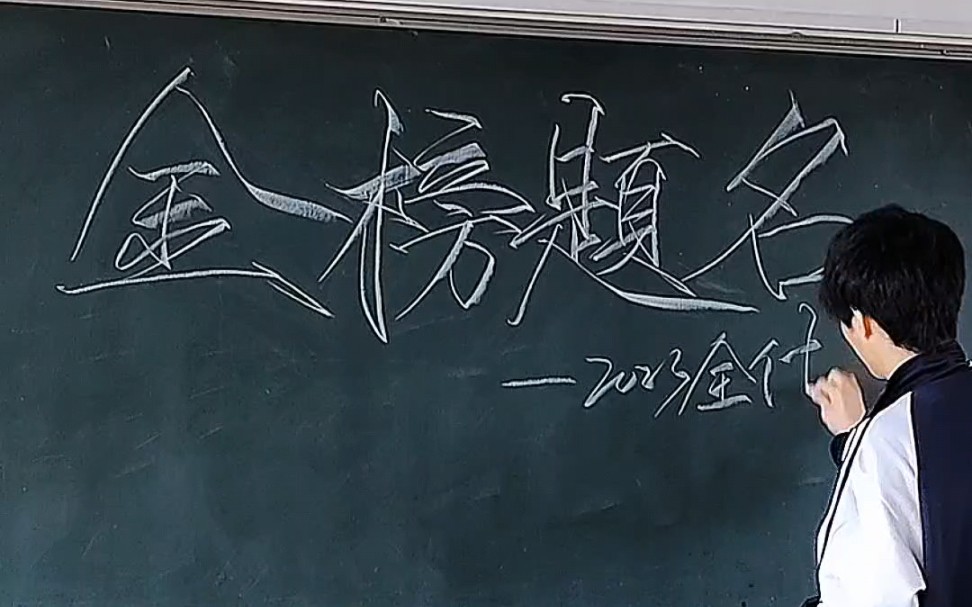 金榜题名
—2023全体